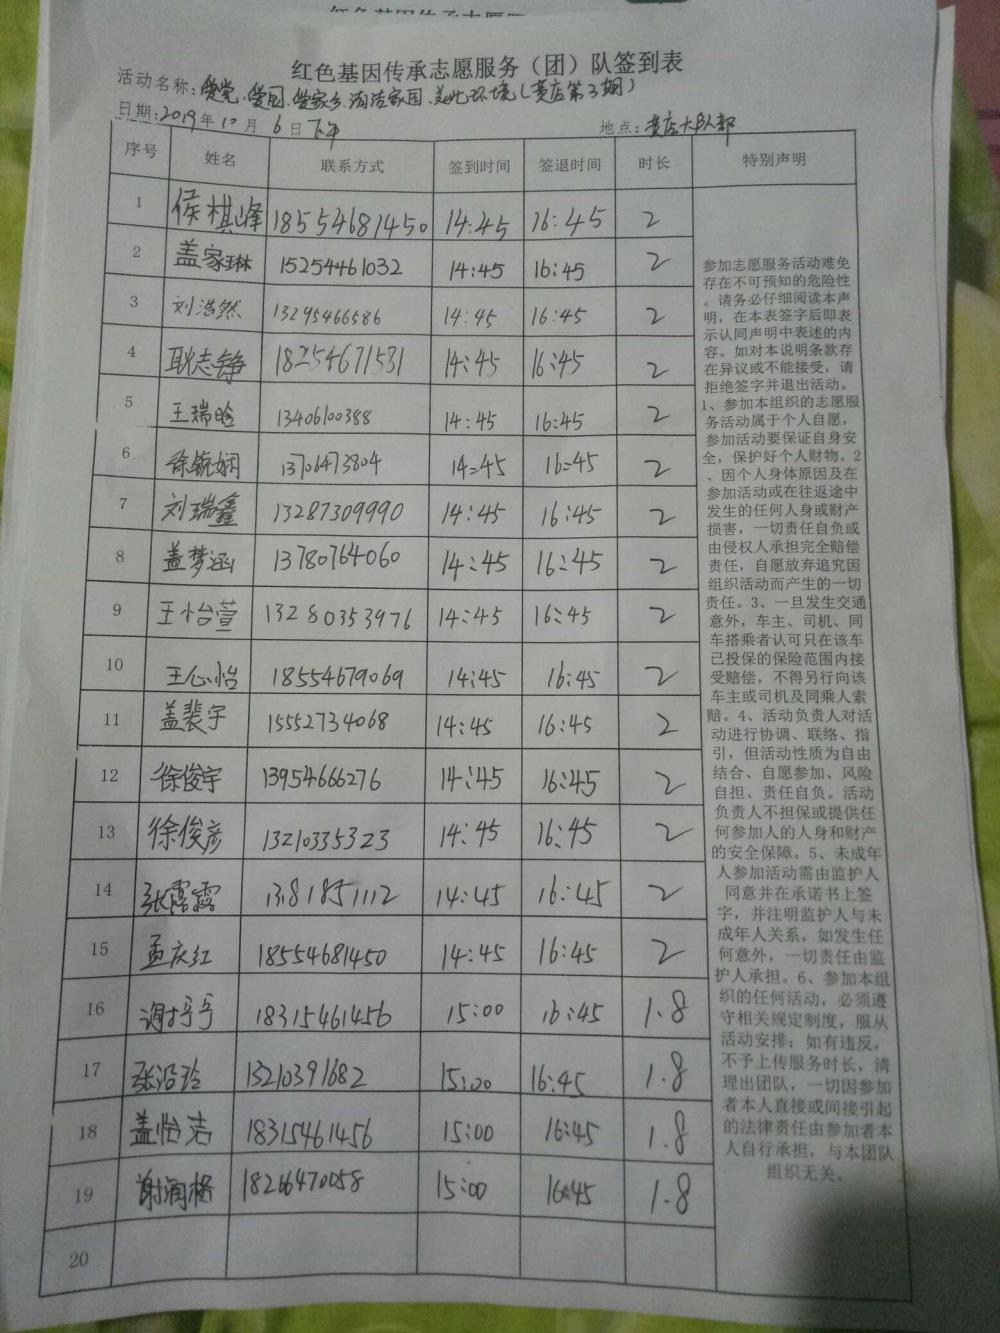 红色基因传承志愿服务（团）队签到表
活动名称：爱党、爱国、爱家乡、清洁家园、美化环境（黄店第3期）
日期：2019年10月6日下午 地点：黄店大队部
序号 姓名 联系方式 签到时间 签退时间 时长 特别声明
1 侯棋峰 18554681450 14:45 16:45 2
2 盖家琳 15254461032 14:45 16:45 2
3 刘浩然 13295466586 14:45 16:45 2
4 耿志铮 18254671531 14:45 16:45 2
5 王瑞晗 13406100388 14:45 16:45 2
6 徐毓娴 13706473804 14:45 16:45 2
7 刘瑞鑫 13287309990 14:45 16:45 2
8 盖梦涵 13780764060 14:45 16:45 2
9 王怡萱 13280353976 14:45 16:45 2
10 王心怡 18554679069 14:45 16:45 2
11 盖裴宇 15552734068 14:45 16:45 2
12 徐俊宇 13954666276 14:45 16:45 2
13 徐俊彦 13210335323 14:45 16:45 2
14 张露露 13818751112 14:45 16:45 2
15 孟庆红 18554681450 14:45 16:45 2
16 18315461456 15:00 16:45 1.8
17 张沿玲 13210391682 15:00 16:45 1.8
18 盖怡洁 18315461456 15:00 16:45 1.8
19 谢润格 18266470058 15:00 16:45 1.8
20
参加志愿服务活动难免
存在不可预知的危险性
。请务必仔细阅读本声
明，在本表签字后即表
示认同声明中表述的内
容。如对本说明条款存
在异议或不能接受，请
拒绝签字并退出活动。
1、参加本组织的志愿服
务活动属于个人自愿，
参加活动要保证自身安
全，保护好个人财物。2
、因个人身体原因及在
参加活动或在往返途中
发生的任何人身或财产
损害，一切责任自负或
由侵权人承担完全赔偿
责任，自愿放弃追究因
组织活动而产生的一切
责任。3、一旦发生交通
意外，车主、司机、同
车搭乘者认可只在该车
已投保的保险范围内接
受赔偿，不得另行向该
车主或司机及同乘人索
赔。4、活动负责人对活
动进行协调、联络、指
引，但活动性质为自由
结合、自愿参加、风险
自担、责任自负。活动
负责人不担保或提供任
何参加人的人身和财产
的安全保障。5、未成年
人参加活动需由监护人
同意并在承诺书上签
字，并注明监护人与未
成年人关系，如发生任
何意外，一切责任由监
护人承担。6、参加本组
织的任何活动，必须遵
守相关规定制度，服从
活动安排；如有违反，
不予上传服务时长，清
理出团队，一切因参加
者本人直接或间接引起
的法律责任由参加者本
人自行承担，与本团队
组织无关。